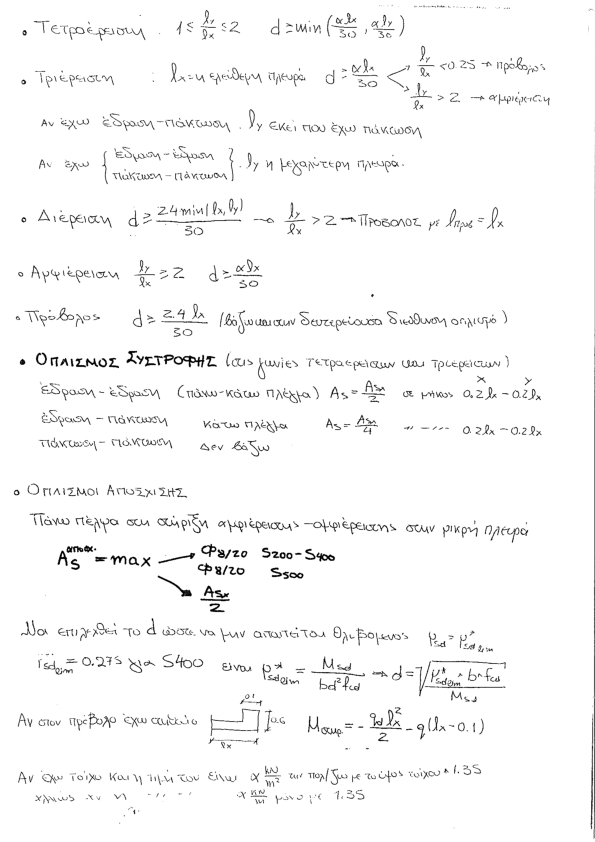 • Τετραέρειστη . 1 ≤ ly/lx ≤ 2 d ≥ min(αlx/30, αly/30)
• Τριέρειστη : lx = η ελεύθερη πλευρά d ≥ αlx/30 ly/lx < 0.25 → πρόβολος
ly/lx > 2 → αμφιέρειστη
Αν έχω έδραση-πάκτωση . ly εκεί που έχω πάκτωση
Αν έχω {έδραση-έδραση
πάκτωση-πάκτωση} . ly η μεγαλύτερη πλευρά.
• Διέρειστη d ≥ 2.4min(lx, ly)/30 → ly/lx > 2 → Πρόβολος με lπροβ = lx
• Αμφιέρειστη ly/lx ≥ 2 d ≥ αlx/30
• Πρόβολος d ≥ 2.4 lx/30 (βάζω και στην δευτερεύουσα διεύθυνση οπλισμό)
• ΟΠΛΙΣΜΟΣ ΣΥΣΤΡΟΦΗΣ (στις γωνίες τετραέρειστων και τριέρειστων)
x y
έδραση-έδραση (πάνω-κάτω πλέγμα) As = Asx/2 σε μήκος 0.2lx - 0.2lx
έδραση-πάκτωση κάτω πλέγμα As = Asx/4 " -- '' 0.2lx - 0.2lx
πάκτωση-πάκτωση Δεν βάζω
• ΟΠΛΙΣΜΟΙ ΑΠΟΣΧΙΣΗΣ
Πάνω πέλμα στη στήριξη αμφιέρειστης-αμφιέρειστης στην μικρή πλευρά
As αποσχ. = max → Φ8/20 S200-S400
Φ8/20 S500
→ Asx/2
Να επιλεχθεί το d ώστε να μην απαιτείται θλιβόμενος μsd = μ*sdlim
μsdlim = 0.275 για S400 είναι μ*sdlim = Msd/bd²fcd → d = √(μ*sdlim * b * fcd/Msd)
Αν στον πρόβολο έχω στηθαίο 0.1 0.6 lx Mστηρ = - qd lx²/2 - q(lx-0.1)
Αν έχω τοίχο και η τιμή του είναι α kN/m² την πολ/ζω με το ύψος τοίχου * 1.35
α kN/m μόνο με 1.35